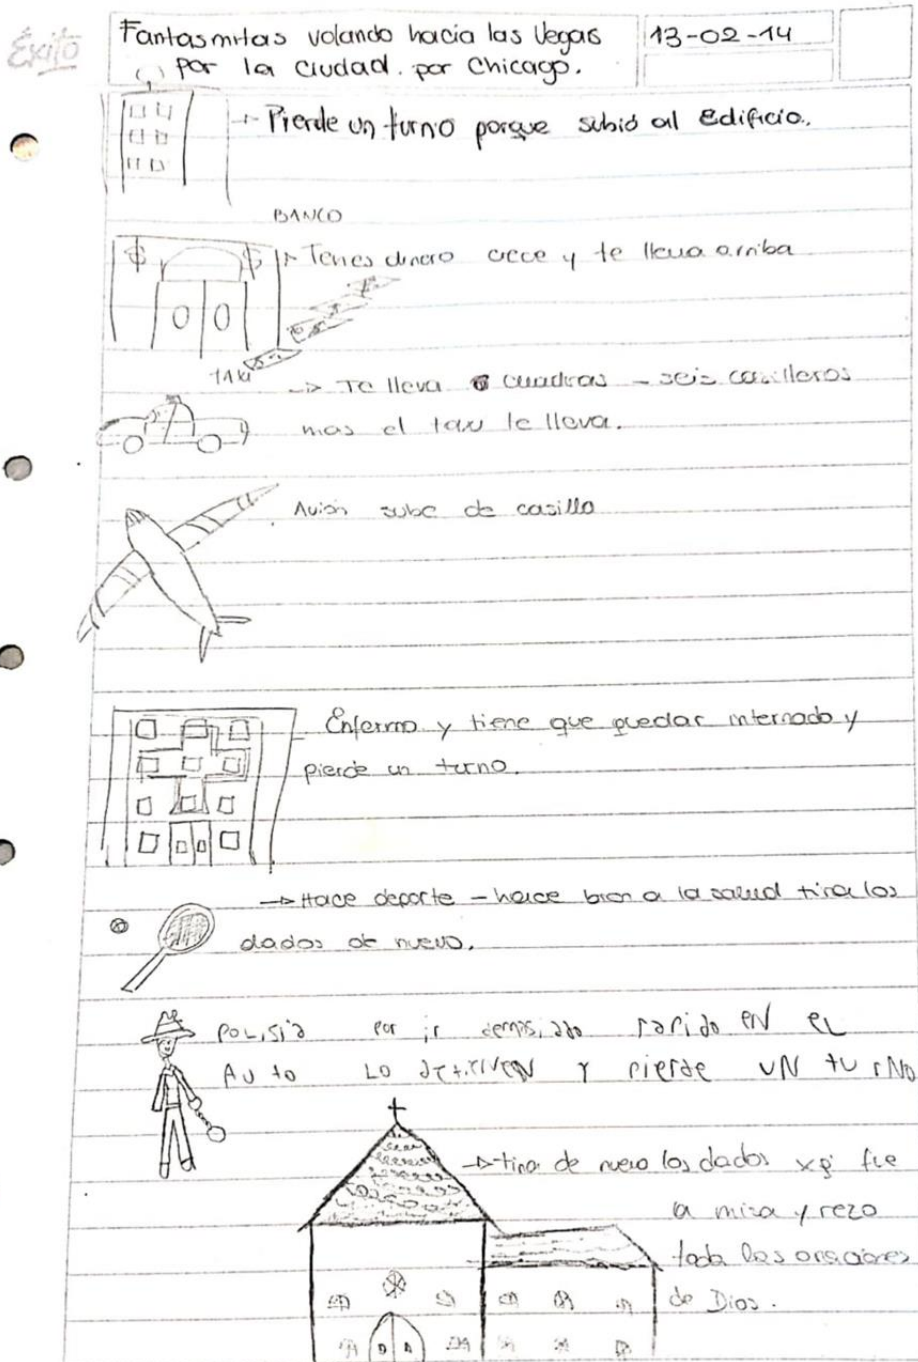 Éxito
Fantasmitas volando hacia las Vegas
por la ciudad. por Chicago.
13-02-14
→ Pierde un turno porque subió al Edificio.
BANCO
$ $
→ Tenes dinero crece y te lleva arriba
TAXI
→ Te lleva 6 cuadras - seis casilleros
mas el taxi le lleva.
Avión sube de casillo
Enfermo y tiene que quedar internado y
pierde un turno.
→ Hace deporte - hace bien a la salud tira los
dados de nuevo.
POLISIA por ir demasiado rapido EN EL
AUTO LO detienen Y pierde UN tuRNo
→ tira de nuevo los dados xq' fue
a misa y rezo
toda las oraciones
de Dios.